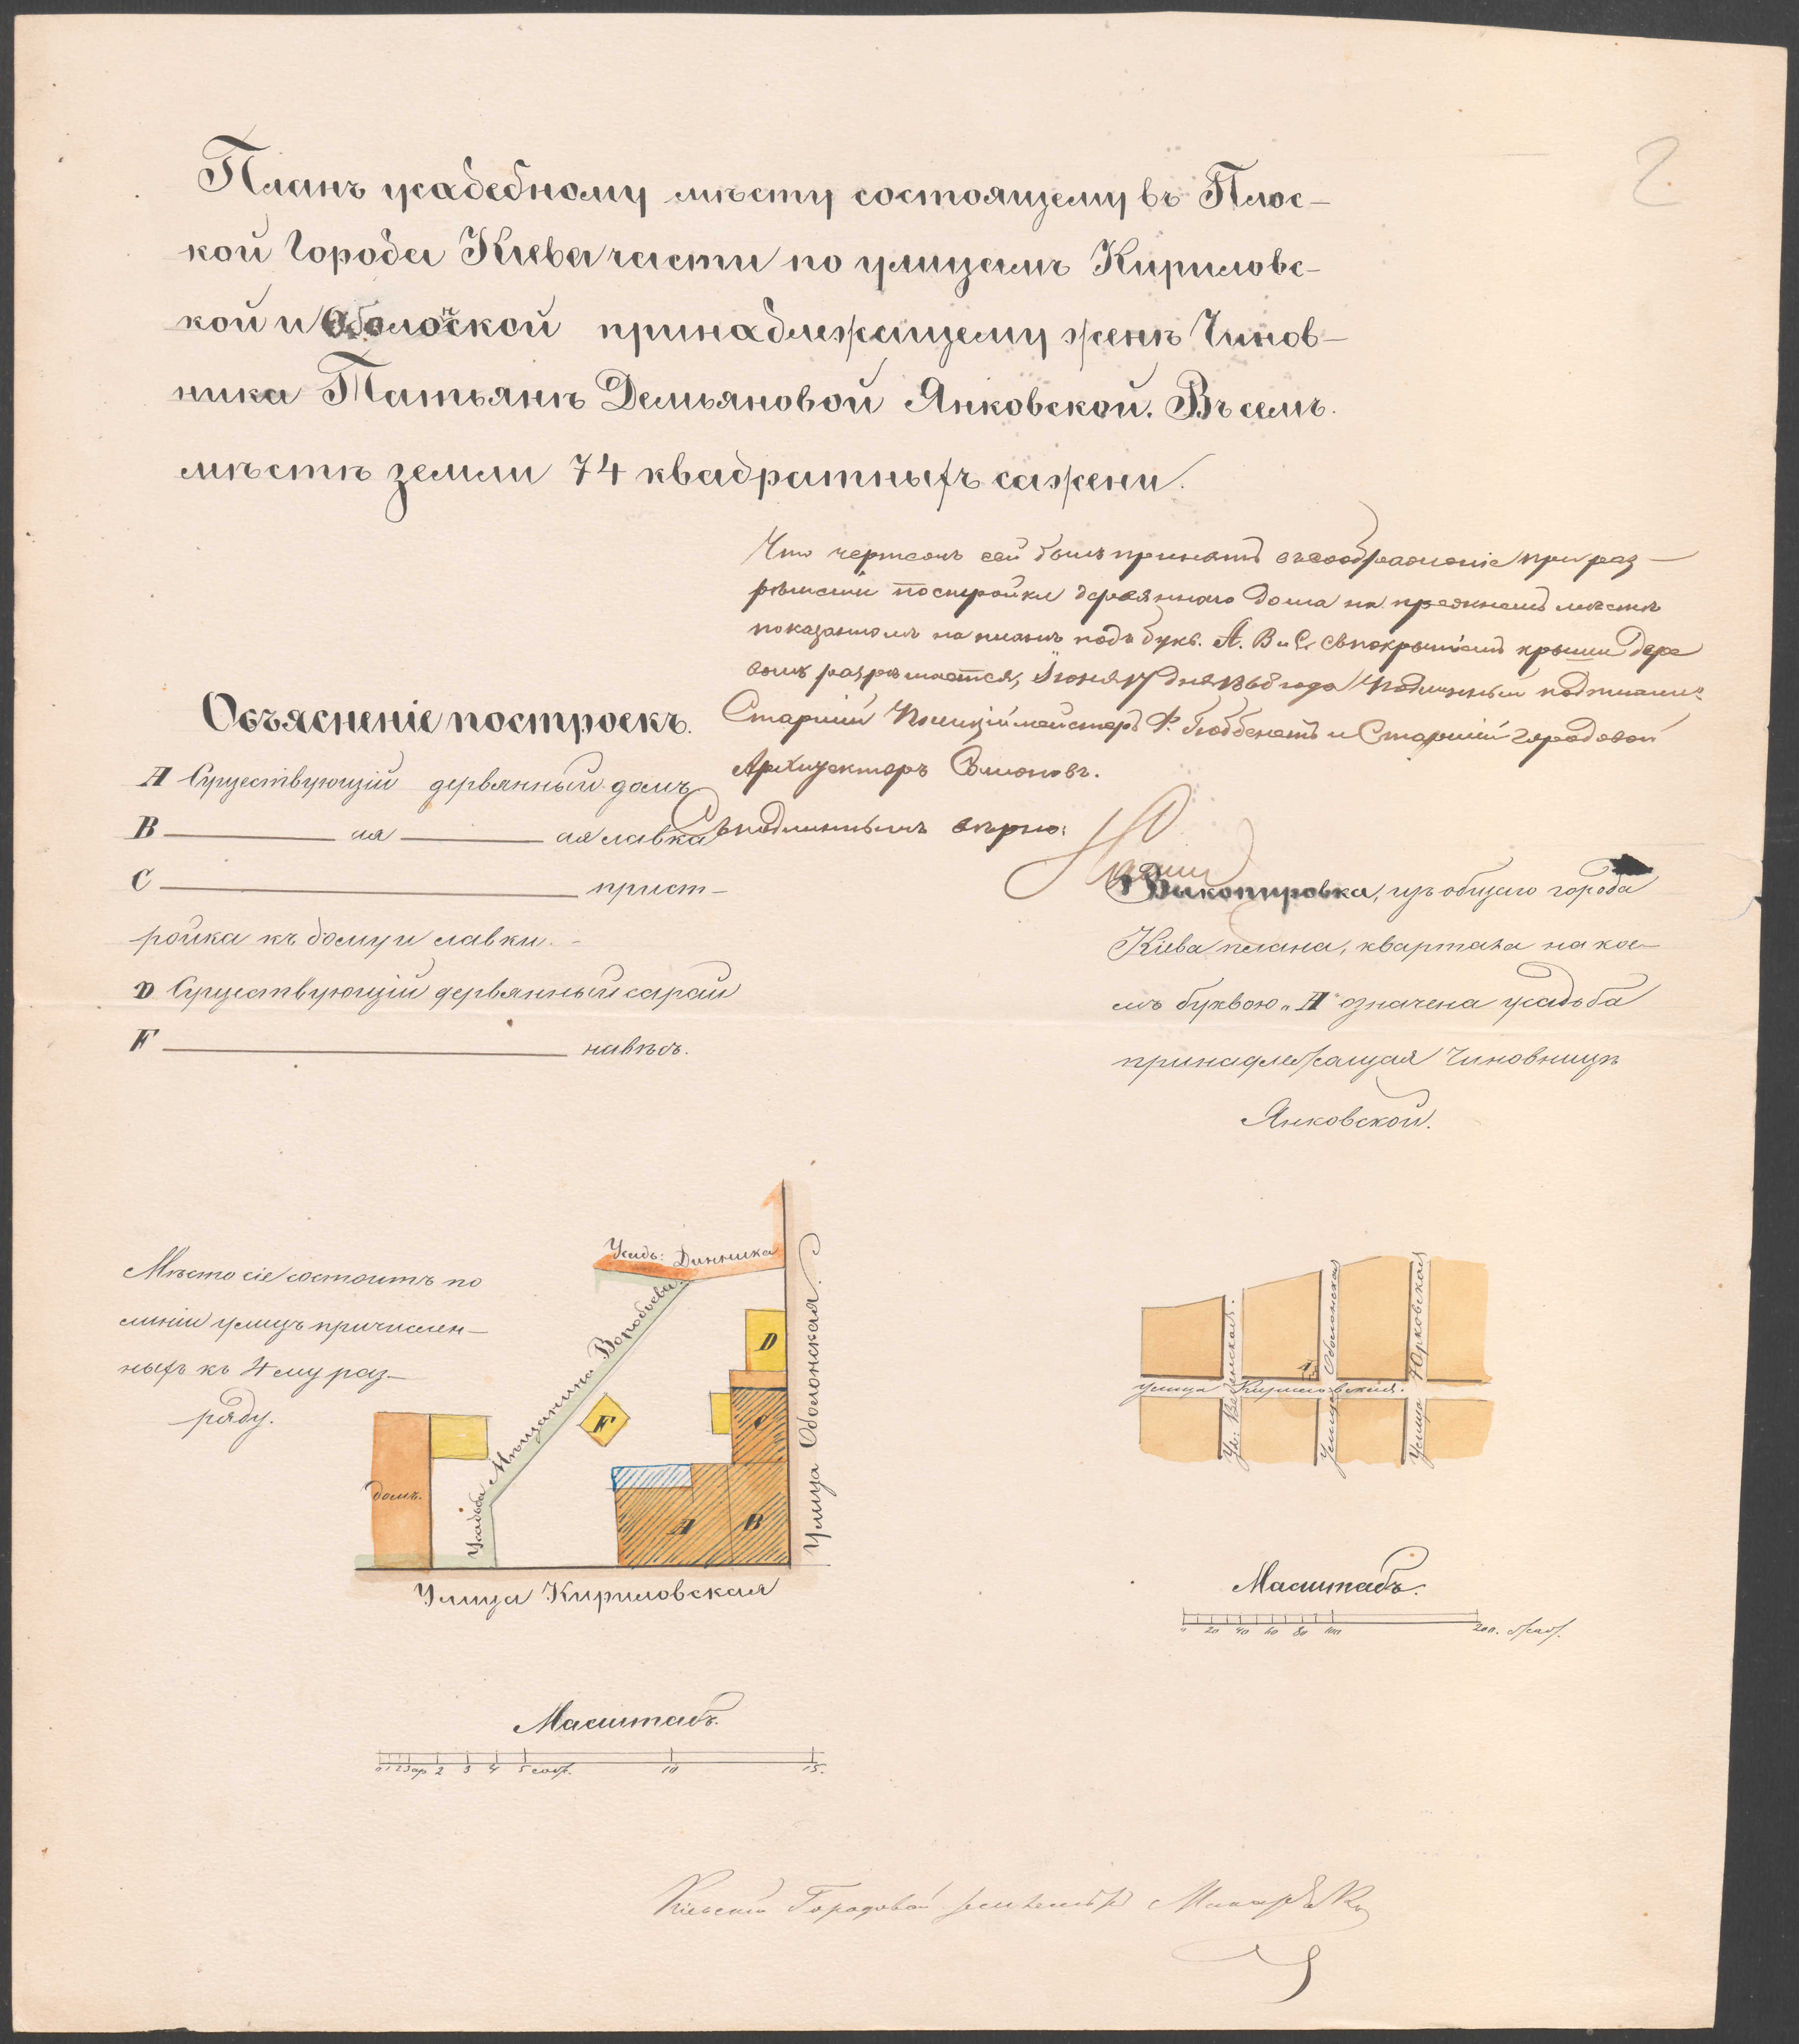 2
Планъ усадебному мѣсту состоящему въ Плос-
кой Города Кіева части по улицамъ Кириловс-
кой и Оболонской принадлежащему женѣ Чинов-
ника Татьянѣ Демьяновой Янковской. Въ семъ
мѣстѣ земли 74 квадратныхъ сажени.
Что чертежъ сей былъ принятъ въ соображеніе при раз-
рѣшеніи постройки деревяннаго дома на прежнемъ мѣстѣ
показанномъ на планѣ подъ букв. А. В и С. съ покрытіемъ крыши дере
вомъ разрѣшается, Іюня 17 дня 1868 года Подлинный подписали:
Старшій Полиціймейстеръ Ф. Гюббенетъ и Старшій городовой
Архитекторъ
Съ подлиннымъ вѣрно:
Объясненіе построекъ.
А Существующій дервянный домъ
В ая ая лавка
С прист-
ройка къ дому и лавки.
D Существующій дервянный сарай
F навѣсъ.
Выкопировка, изъ общаго города
Кіева плана, квартала на кое-
мъ буквою „А" означена усадьба
принадлежащая Чиновницѣ
Янковской.
Мѣсто сіе состоитъ по
линіи улицъ причислен-
ныхъ къ 4му раз-
ряду.
Усадь: Динника
Усадьба Мѣщанина Воробьева.
Улица Оболонская.
D
F
С
А
В
домъ.
Улица Кириловская
Масштабъ.
0 1 2 3 ар 2 3 4 5 саж. 10 15.
Оболонская
Улица Юрковская
А
улица Кириловская.
Масштабъ.
0 20 40 60 80 100 200. саж.
Кіевскій Городовой землемѣръ